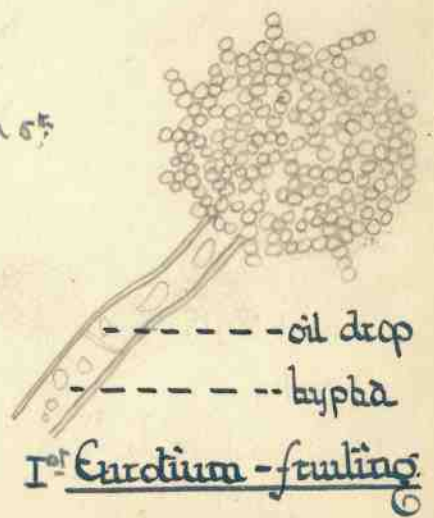 oil drop
hypha
Eurotium - fruiting